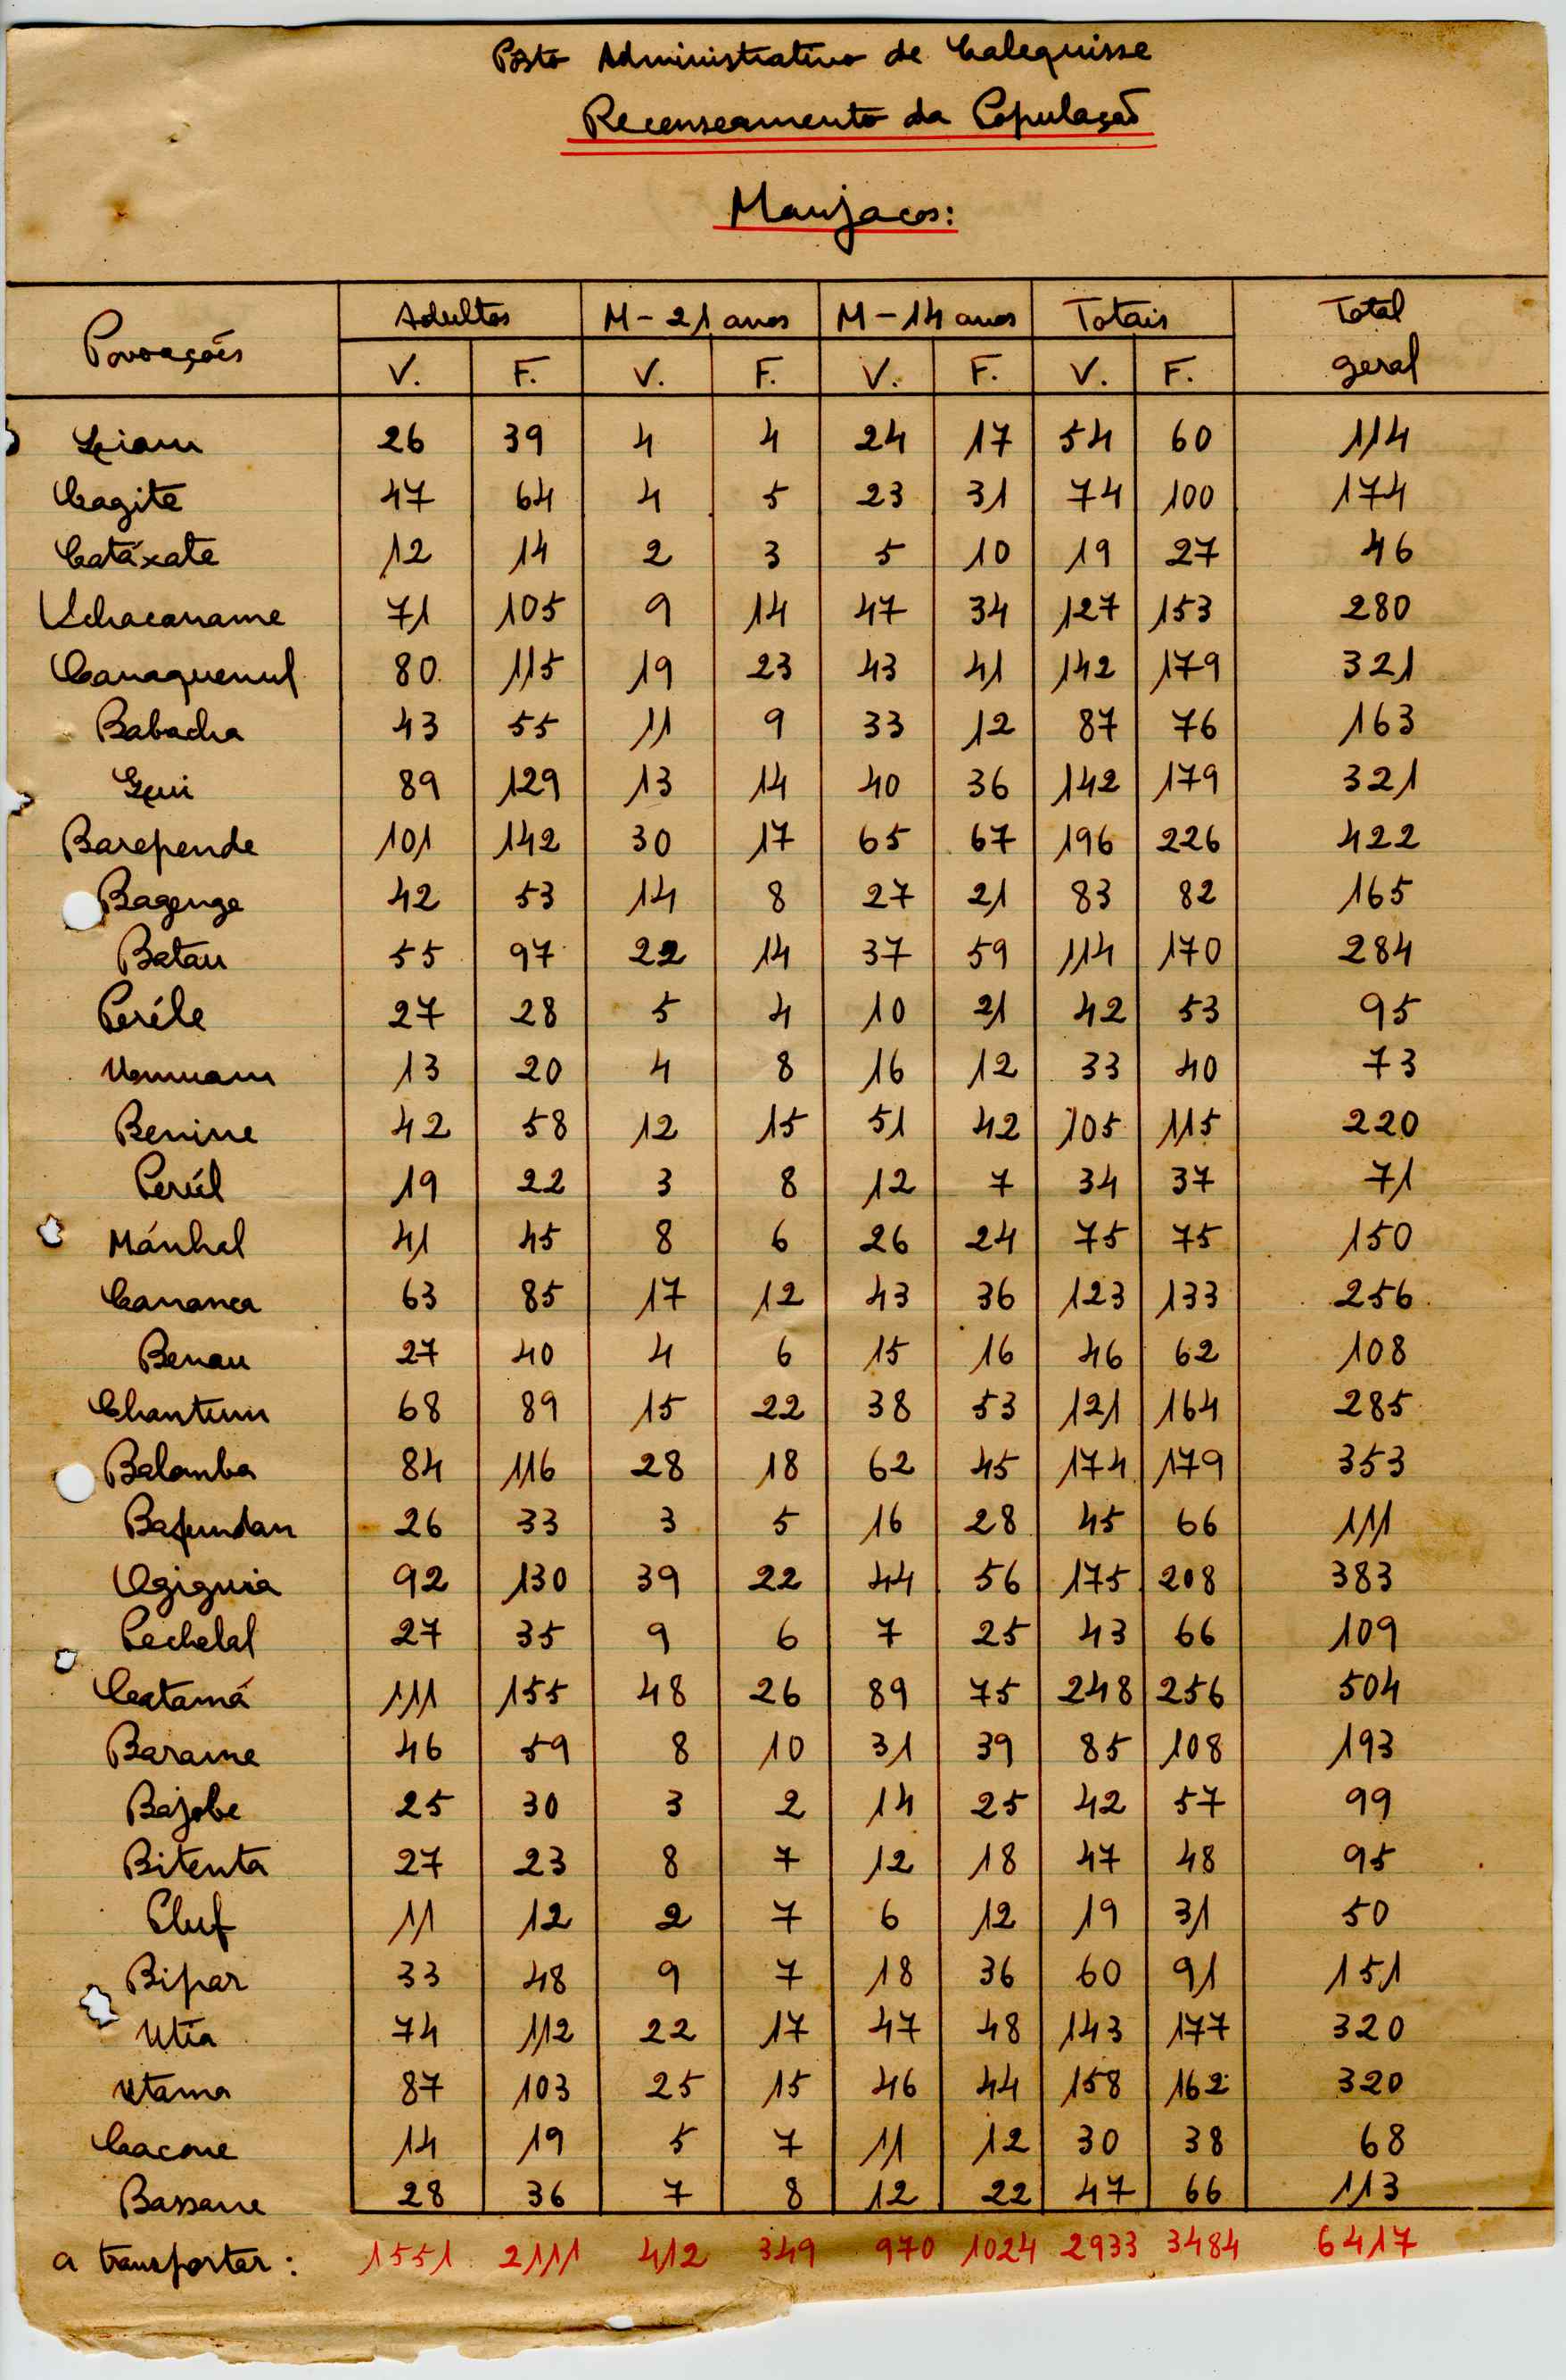 Pôsto Administrativo de Calequisse
Recenseamento da População
Manjacos:
Povoações Adultos M-21 anos M-14 anos Totais Total geral
V. F. V. F. V. F. V. F.
26 39 4 4 24 17 54 60 114
Cagite 47 64 4 5 23 31 74 100 174
Catáxate 12 14 2 3 5 10 19 27 46
Uchacaname 71 105 9 14 47 34 127 153 280
Canaquenul 80 115 19 23 43 41 142 179 321
Babacha 43 55 11 9 33 12 87 76 163
89 129 13 14 40 36 142 179 321
Barepende 101 142 30 17 65 67 196 226 422
Bagenge 42 53 14 8 27 21 83 82 165
Batau 55 97 22 14 37 59 114 170 284
Peréle 27 28 5 4 10 21 42 53 95
13 20 4 8 16 12 33 40 73
Benine 42 58 12 15 51 42 105 115 220
Perúl 19 22 3 8 12 7 34 37 71
Mánhal 41 45 8 6 26 24 75 75 150
Cananca 63 85 17 12 43 36 123 133 256
Benau 27 40 4 6 15 16 46 62 108
Chantum 68 89 15 22 38 53 121 164 285
Balomba 84 116 28 18 62 45 174 179 353
Bafundan 26 33 3 5 16 28 45 66 111
Ugiguia 92 130 39 22 44 56 175 208 383
Pechelal 27 35 9 6 7 25 43 66 109
Catamá 111 155 48 26 89 75 248 256 504
Barame 46 59 8 10 31 39 85 108 193
Bajobe 25 30 3 2 14 25 42 57 99
Bitenta 27 23 8 7 12 18 47 48 95
Cluf 11 12 2 7 6 12 19 31 50
Bipar 33 48 9 7 18 36 60 91 151
Utia 74 112 22 17 47 48 143 177 320
Utama 87 103 25 15 46 44 158 162 320
Cacone 14 19 5 7 11 12 30 38 68
Bassane 28 36 7 8 12 22 47 66 113
a transportar: 1551 2111 412 349 970 1024 2933 3484 6417